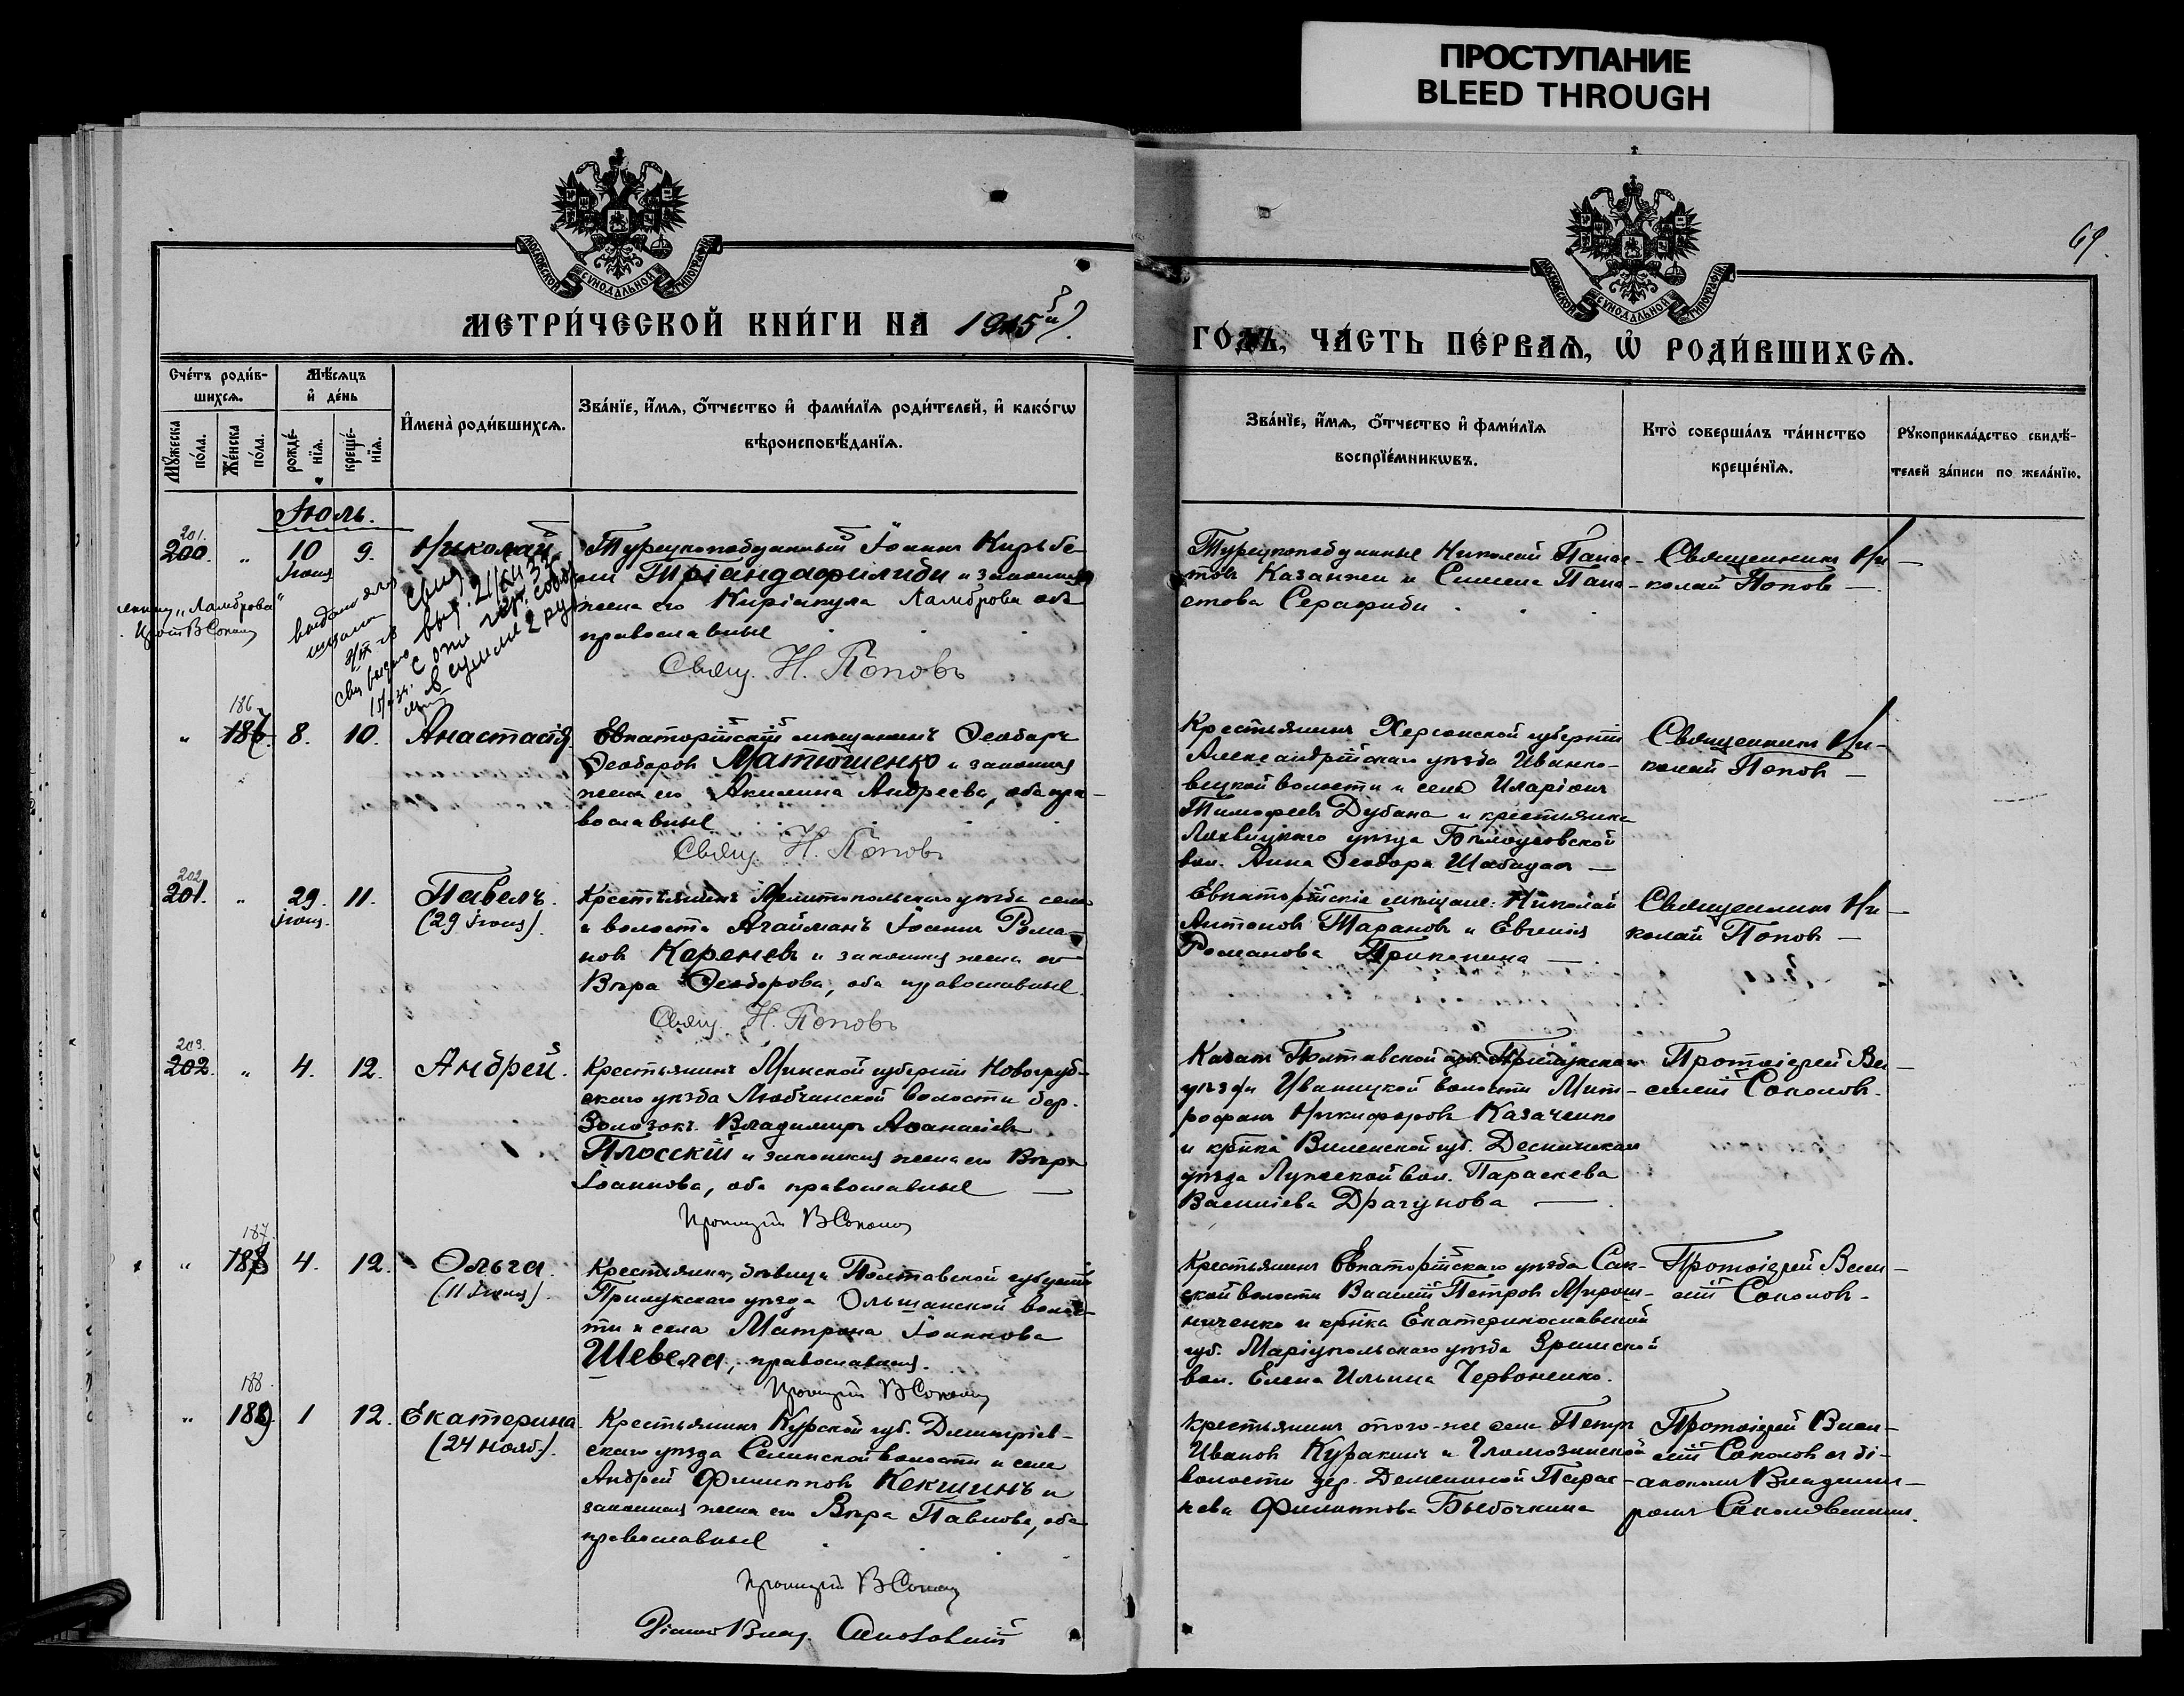 ПРОСТУПАНИЕ
BLEED THROUGH
69.
МОСКОВСКОЙ СѴНОДАЛЬНОЙ ТИПОГРАФІИ
МОСКОВСКОЙ СѴНОДАЛЬНОЙ ТИПОГРАФІИ
МЕТРИ́ЧЕСКОЙ КНИ́ГИ НА 1915й
ГО́ДЪ, ЧА́СТЬ ПЕ́РВАѦ, Ѡ РОДИ́ВШИХСѦ.
Сче́тъ роди́в-
шихсѧ.
Мꙋ́жеска по́ла.
Же́нска по́ла.
Мѣ́сѧцъ
и҆ де́нь
рожде́-
нїѧ.
креще́-
нїѧ.
И҆мена̀ роди́вшихсѧ.
Зва́нїе, и҆́мѧ, ѻ҆́тчество и҆ фами́лїѧ роди́телей, и҆ како́гѡ
вѣроисповѣ́данїѧ.
Зва́нїе, и҆́мѧ, ѻ҆́тчество и҆ фами́лїѧ
воспрїе́мникѡвъ.
Кто̀ соверша́лъ та́инство
креще́нїѧ.
Рꙋкоприкла́дство свидѣ́-
телей за́писи по жела́нїю.
Іюль.
201.
200. " 10 9. Николай
Іюня
"Ламброва"
Турецкоподданный Іоаннъ Кирьбе-
ли Тріандафилиди и законная
жена его Киріакула Ламброва оба
православные
Свящ. Н. Поповъ
Турецкоподданные Николай Панае-
товъ Казанжи и Симела Пана-
етова Серафиди
Священникъ Ни-
колай Поповъ
186
" 8. 10. Анастасія.
Евпаторійскій мѣщанинъ Ѳеодоръ
Ѳеодоровъ Матюшенко и законная
жена его Акилина Андреева, оба пра-
вославные
Свящ. Н. Поповъ
Крестьянинъ Херсонской губерніи
Александрійскаго уѣзда Иванко-
вецкой волости и села Иларіонъ
Тимофеевъ Дубана и крестьянка
Лохвицкаго уѣзда
вол. Анна Ѳеодора
Священникъ Ни-
колай Поповъ
202
201. " 29. 11. Павелъ.
Іюня. (29 Іюня).
Крестьянинъ Мелитопольскаго уѣзда села
и волости Агайманъ Іоаннъ Рома-
новъ Кореневъ и законная жена его
Вѣра Ѳеодорова, оба православные.
Свящ. Н. Поповъ
Евпаторійскіе мѣщане: Николай
Антоновъ Тарановъ и Евгенія
Романова
Священникъ Ни-
колай Поповъ
203.
202. " 4. 12. Андрей.
Крестьянинъ Минской губерніи Новогруд-
скаго уѣзда Любчанской волости дер.
Владимиръ Аѳанасіевъ
Плосскій и законная жена его Вѣра
Іоаннова, оба православные
Протоіерей В Соколов
Казакъ Полтавской губ. Прилукскаго
уѣзда Иваницкой волости Мит-
рофанъ Никифоровъ Казаченко
и кр-нка Виленской губ. Дисненскаго
уѣзда Лужской вол. Параскева
Василіева Драгунова
Протоіерей Ва-
силій Соколовъ.
187.
" 4. 12. Ольга.
(11 Іюля).
Крестьянка, дѣвица Полтавской губерніи
Прилукскаго уѣзда Ольшанской волос-
ти и села Матрона Іоаннова
Шевела, православная.
Протоіерей В Соколов
Крестьянинъ Евпаторійскаго уѣзда Сак-
ской волости Василій Петровъ Мирош-
ниченко и кр-нка Екатеринославской
губ. Маріупольскаго уѣзда
вол. Елена Ильина Червоненко.
Протоіерей Васи-
лій Соколовъ.
188.
" 1 12. Екатерина
(24 нояб.).
Крестьянинъ Курской губ. Дмитріев-
скаго уѣзда Селинской волости и села
Андрей Филипповъ Кекшинъ и
законная жена его Вѣра Павлова, оба
православные
Протоіерей В Соколов
Крестьянинъ того-же села Петръ
Ивановъ Куракинъ и
волости дер. Деменина Парас-
кева Филиппова Бывочкина
Протоіерей Васи-
лій Соколовъ съ ді-
акономъ Владими-
ромъ